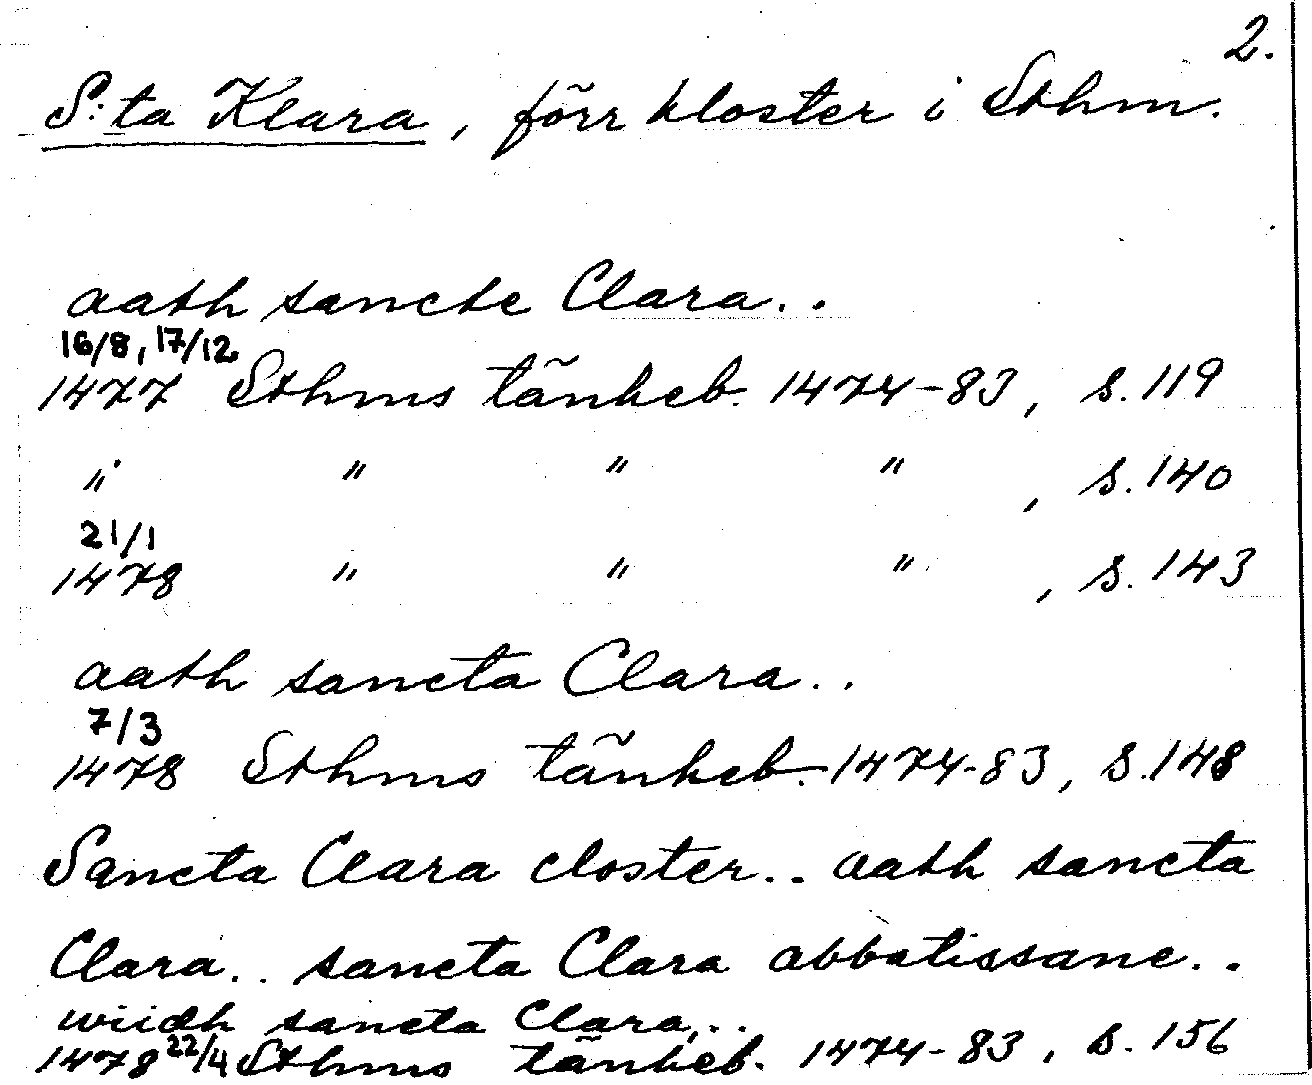 2.
S:ta Klara, förr kloster i Sthm.
aath sancte Clara..
16/8, 17/12
1477 Sthms tänkeb. 1474-83, s. 119
" " " ", s. 140
21/1
1478 " " ", s. 143
aath sancta Clara..
7/3
1478 Sthms tänkeb. 1474-83, s. 148
Sancta Clara closter.. aath sancta
Clara.. sancta Clara abbatissane..
wiidh sancta Clara...
1478 22/4 Sthms tänkeb. 1474-83, s. 156